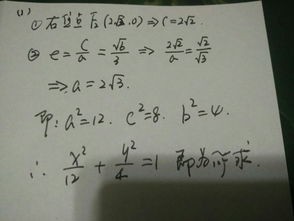 (1)
① 右焦点 F₂(2√2,0) ⇒ C=2√2.
② e = C/a = √6/3 ⇒ 2√2/a = √2/√3
⇒ a = 2√3.
即: a²=12. c²=8. b²=4.
∴ x²/12 + y²/4 = 1 即为所求.